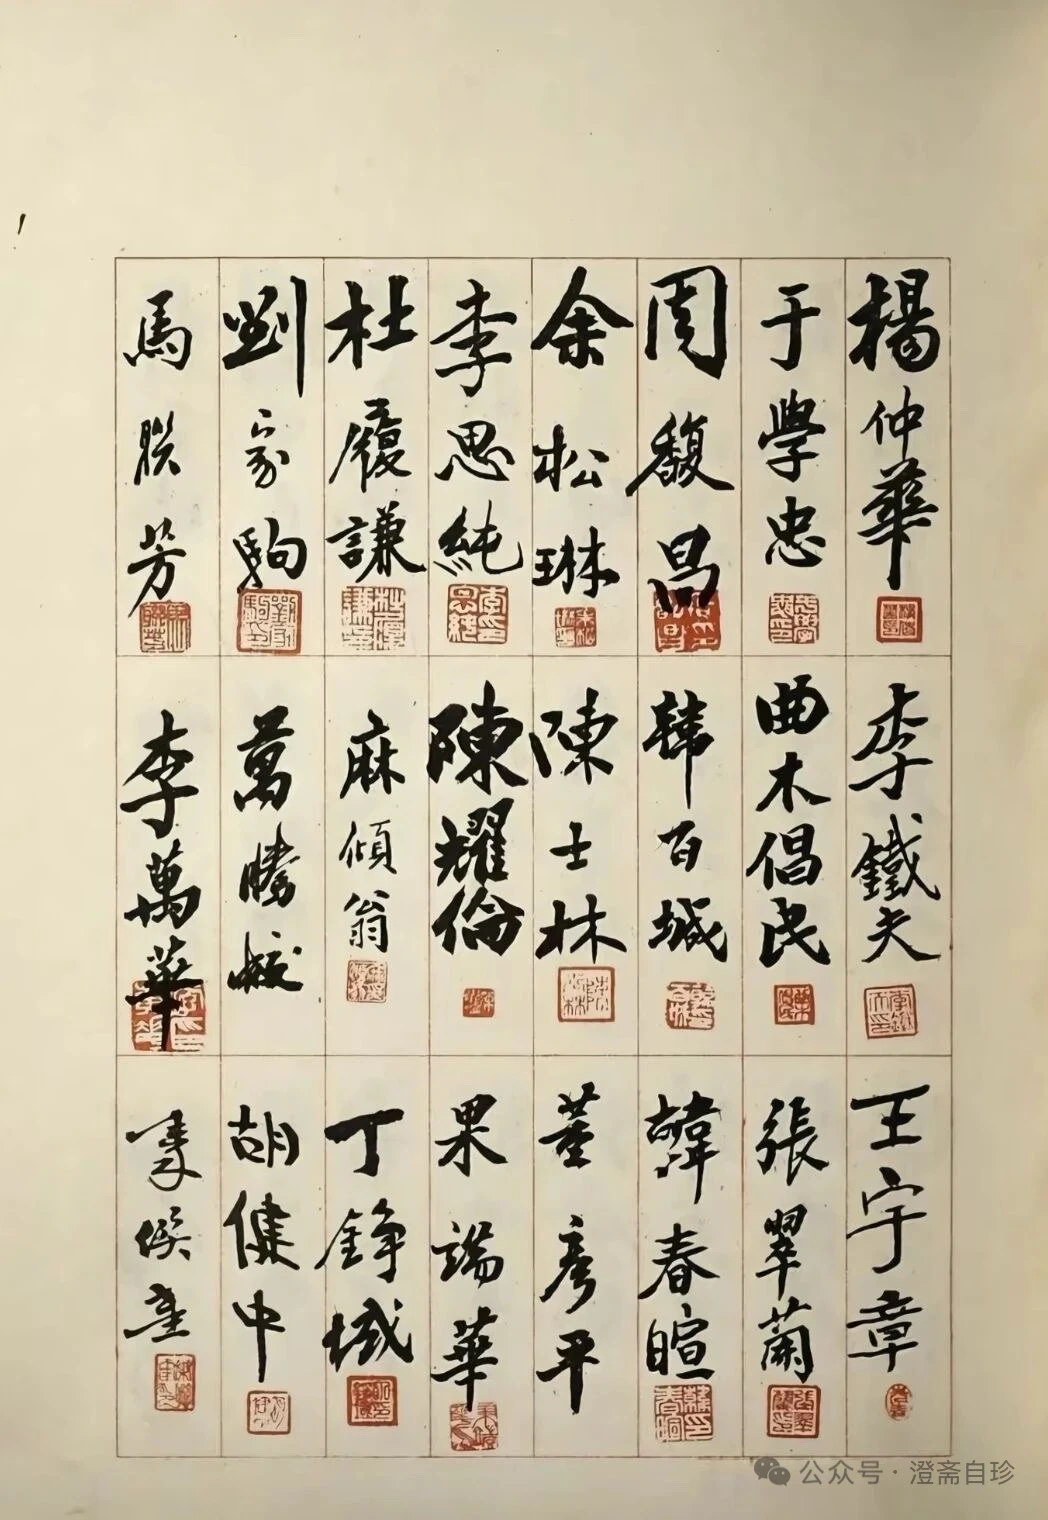 楊仲華
于學忠
周馥昌
余松琳
李思純
杜履謙
劉家駒
馬聯芳
李鐵夫
曲木倡民
韓百城
陳士林
陳耀倫
麻傾翁
萬騰蛟
李萬華
王宇章
張翠蘭
韓春暄
董彥平
果端華
丁錚域
胡健中
公众号·澄斋自珍